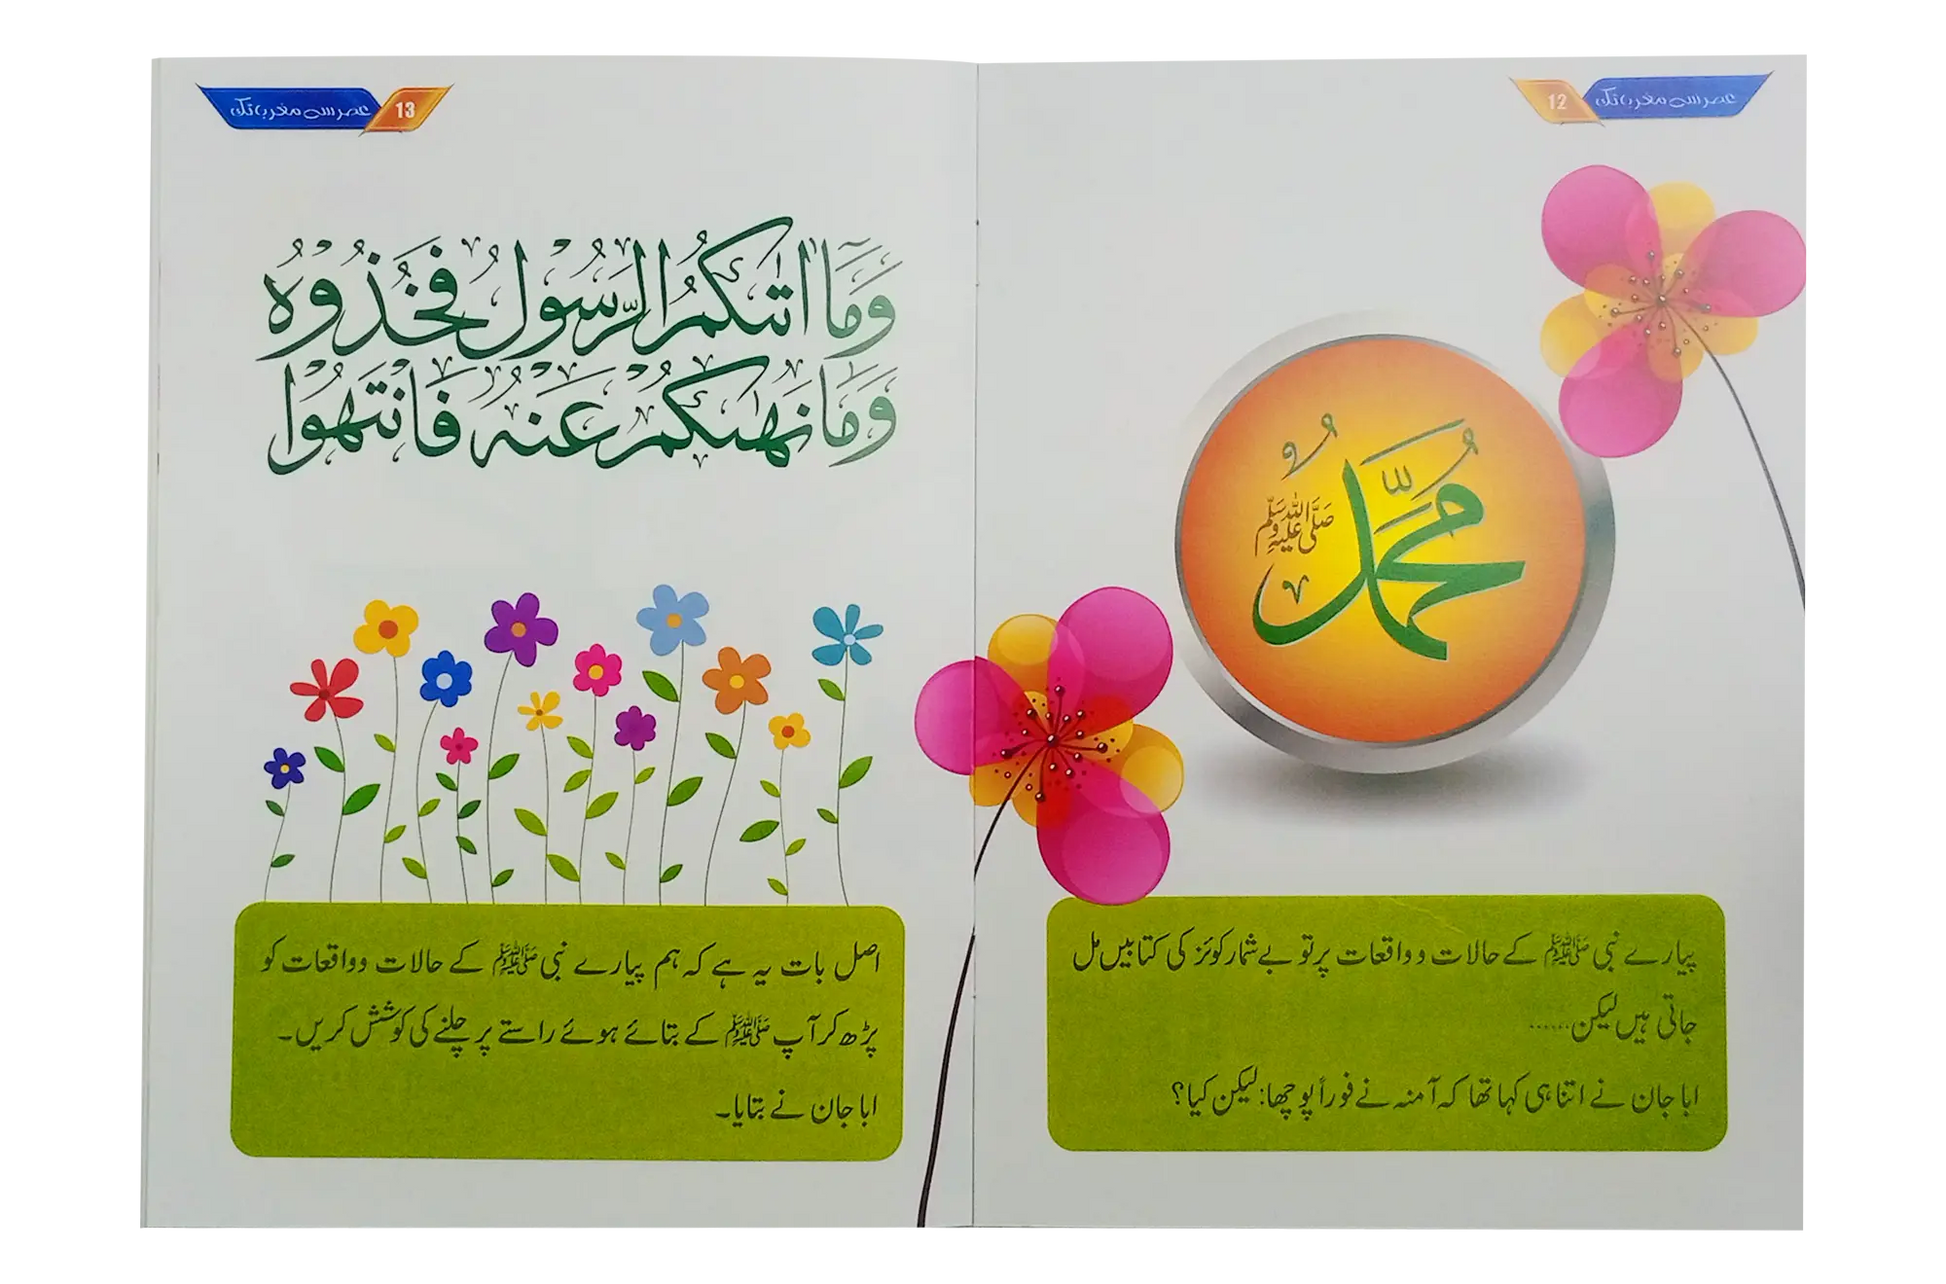 عصر سے مغرب تک
12
محمدٌ
صلی اللہ علیہ وسلم
پیارے نبی ﷺ کے حالات و واقعات پر تو بے شمار کوئز کی کتابیں مل
جاتی ہیں لیکن......
ابا جان نے اتنا ہی کہا تھا کہ آمنہ نے فوراً پوچھا: لیکن کیا؟
13
عصر سے مغرب تک
وَمَآ اٰتٰىكُمُ الرَّسُوْلُ فَخُذُوْهُ
وَمَا نَهٰىكُمْ عَنْهُ فَانْتَهُوْا
اصل بات یہ ہے کہ ہم پیارے نبی ﷺ کے حالات و واقعات کو
پڑھ کر آپ ﷺ کے بتائے ہوئے راستے پر چلنے کی کوشش کریں۔
ابا جان نے بتایا۔